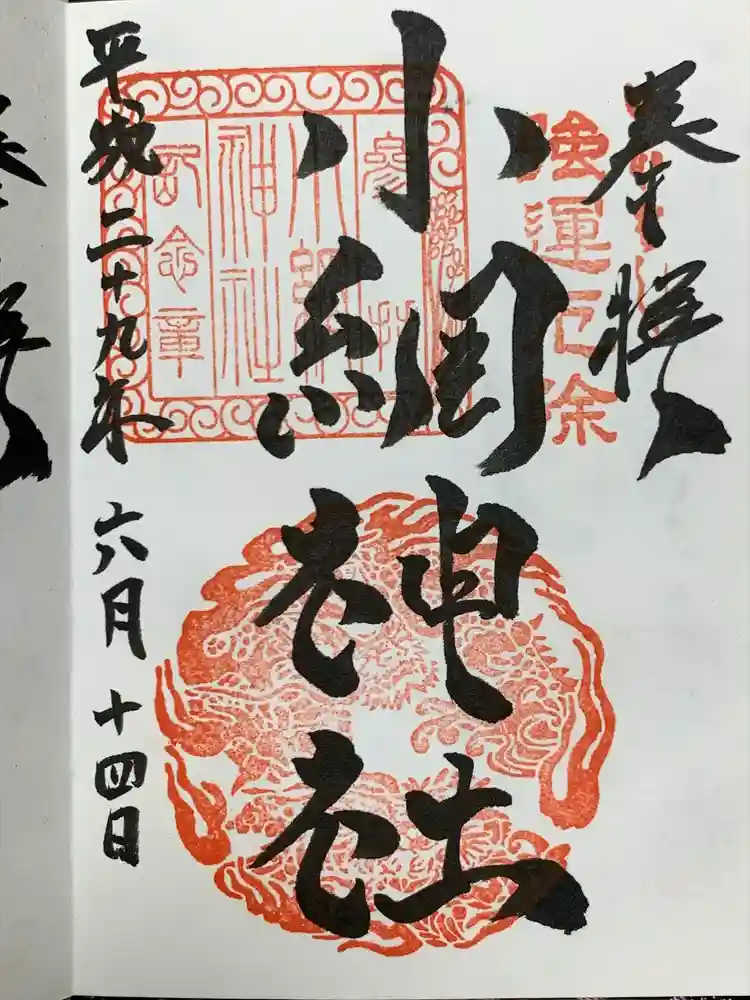 奉拝
強運厄除
小網神社
參拝
小網
神社
記念章
平成二十九年六月十四日